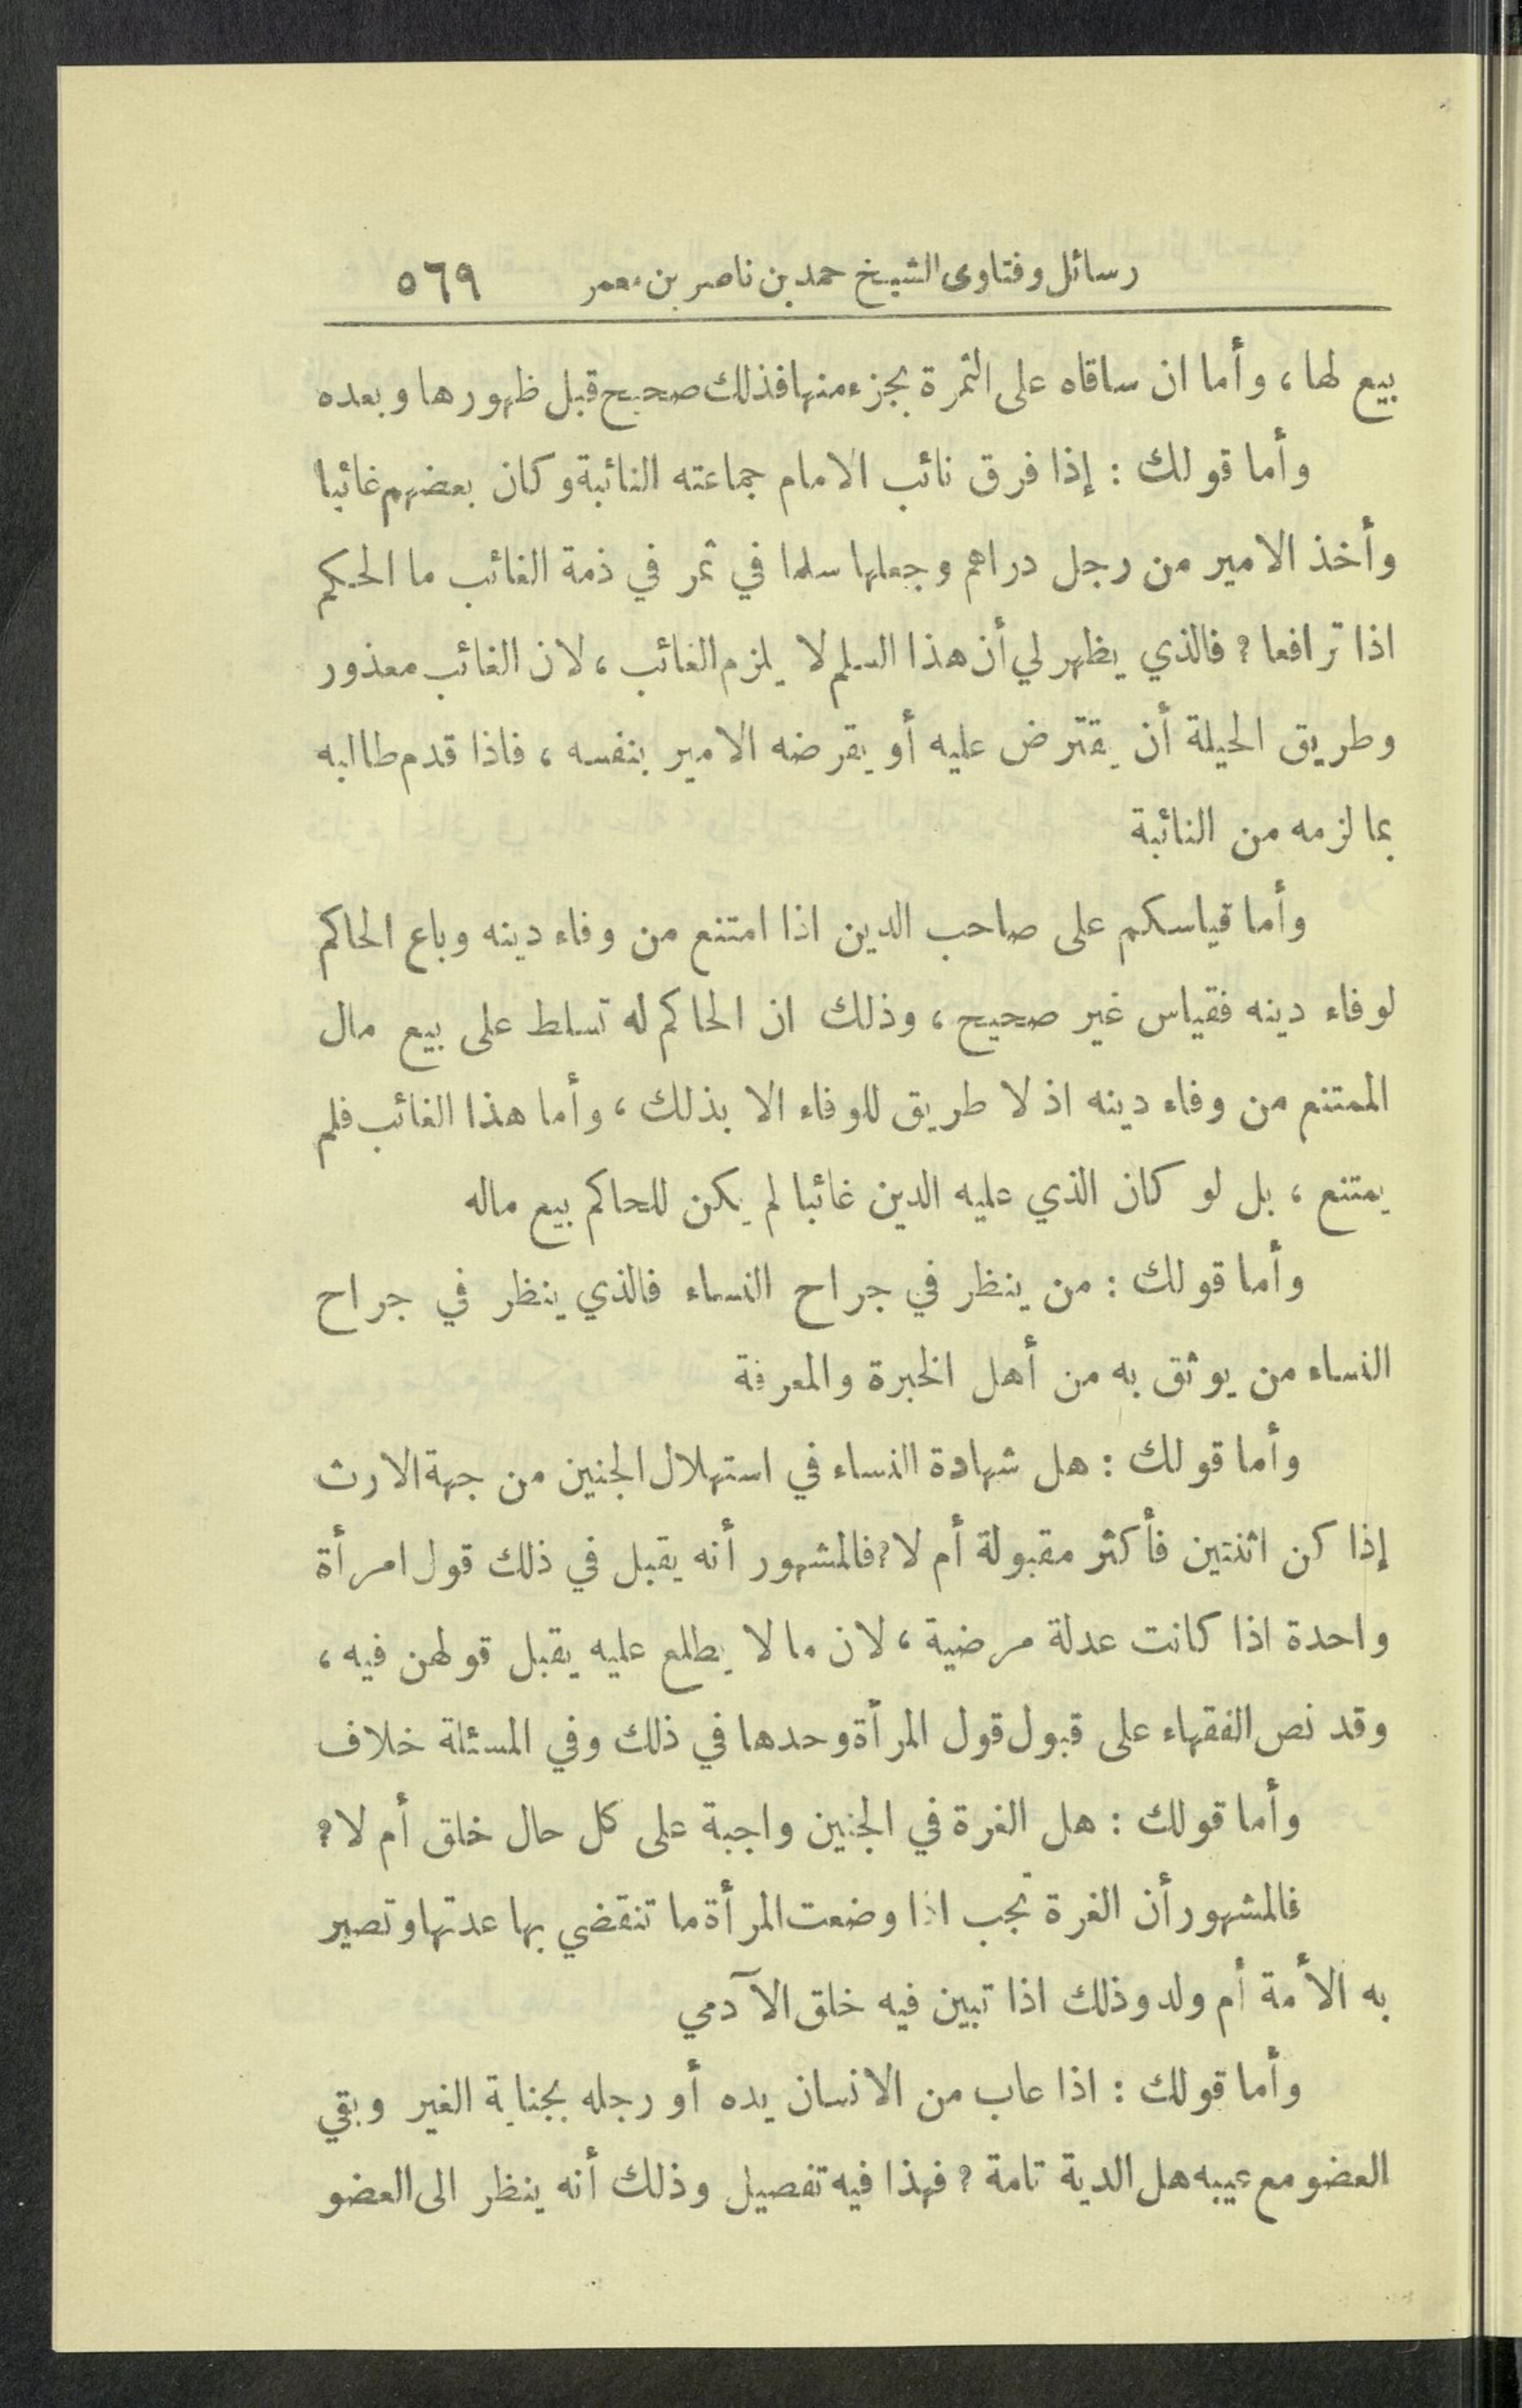 رسائل وفتاوى الشيخ حمد بن ناصر بن معمر ٥٦٩
بيع لها ، وأما ان ساقاه على الثمرة بجزء منها فذلك صحيح قبل ظهورها وبعده
وأما قولك : إذا فرق نائب الامام جماعته النائبة وكان بعضهم غائبا
وأخذ الامير من رجل دراهم وجعلها سلما في ثمر في ذمة الغائب ما الحكم
اذا ترافعا ؟ فالذي يظهر لي أن هذا السلم لا يلزم الغائب ، لان الغائب معذور
وطريق الحيلة أن يقترض عليه أو يقرضه الامير بنفسه ، فاذا قدم طالبه
بما لزمه من النائبة
وأما قياسكم على صاحب الدين اذا امتنع من وفاء دينه وباع الحاكم
لوفاء دينه فقياس غير صحيح ، وذلك ان الحاكم له تسلط على بيع مال
الممتنع من وفاء دينه اذ لا طريق للوفاء الا بذلك ، وأما هذا الغائب فلم
يمتنع ، بل لو كان الذي عليه الدين غائبا لم يكن للحاكم بيع ماله
وأما قولك : من ينظر في جراح النساء فالذي ينظر في جراح
النساء من يوثق به من أهل الخبرة والمعرفة
وأما قولك : هل شهادة النساء في استهلال الجنين من جهة الارث
إذا كن اثنتين فأكثر مقبولة أم لا ؟ فالمشهور أنه يقبل في ذلك قول امرأة
واحدة اذا كانت عدلة مرضية ، لان ما لا يطلع عليه يقبل قولهن فيه ،
وقد نص الفقهاء على قبول قول المرأة وحدها في ذلك وفي المسئلة خلاف
وأما قولك : هل الغرة في الجنين واجبة على كل حال خلق أم لا ؟
فالمشهور أن الغرة تجب اذا وضعت المرأة ما تنقضي بها عدتها وتصير
به الأمة أم ولد وذلك اذا تبين فيه خلق الآدمي
وأما قولك : اذا عاب من الانسان يده أو رجله بجناية الغير وبقي
العضو مع عيبه هل الدية تامة ؟ فهذا فيه تفصيل وذلك أنه ينظر الى العضو